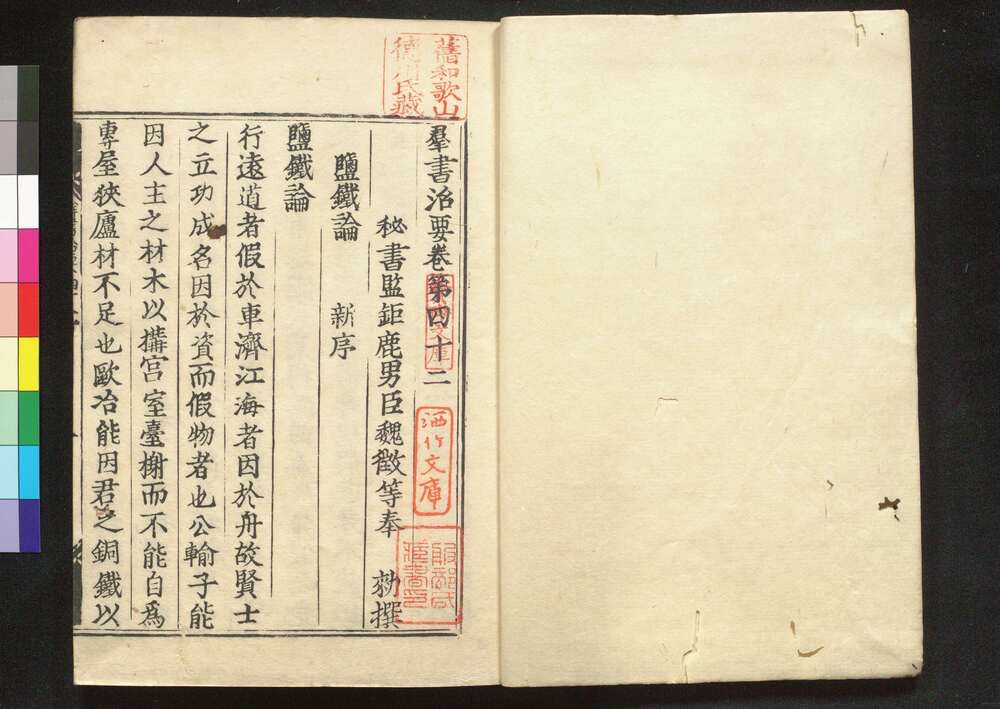 羣書治要卷第四十二
秘書監鉅鹿男臣魏徵等奉 勑撰
鹽鐵論 新序
鹽鐵論
行遠道者假於車濟江海者因於舟故賢士
之立功成名因於資而假物者也公輸子能
因人主之材木以搆宫室臺榭而不能自爲
專屋狹廬材不足也歐冶能因君之銅鐵以
舊和歌山
德川氏藏
洒竹文庫